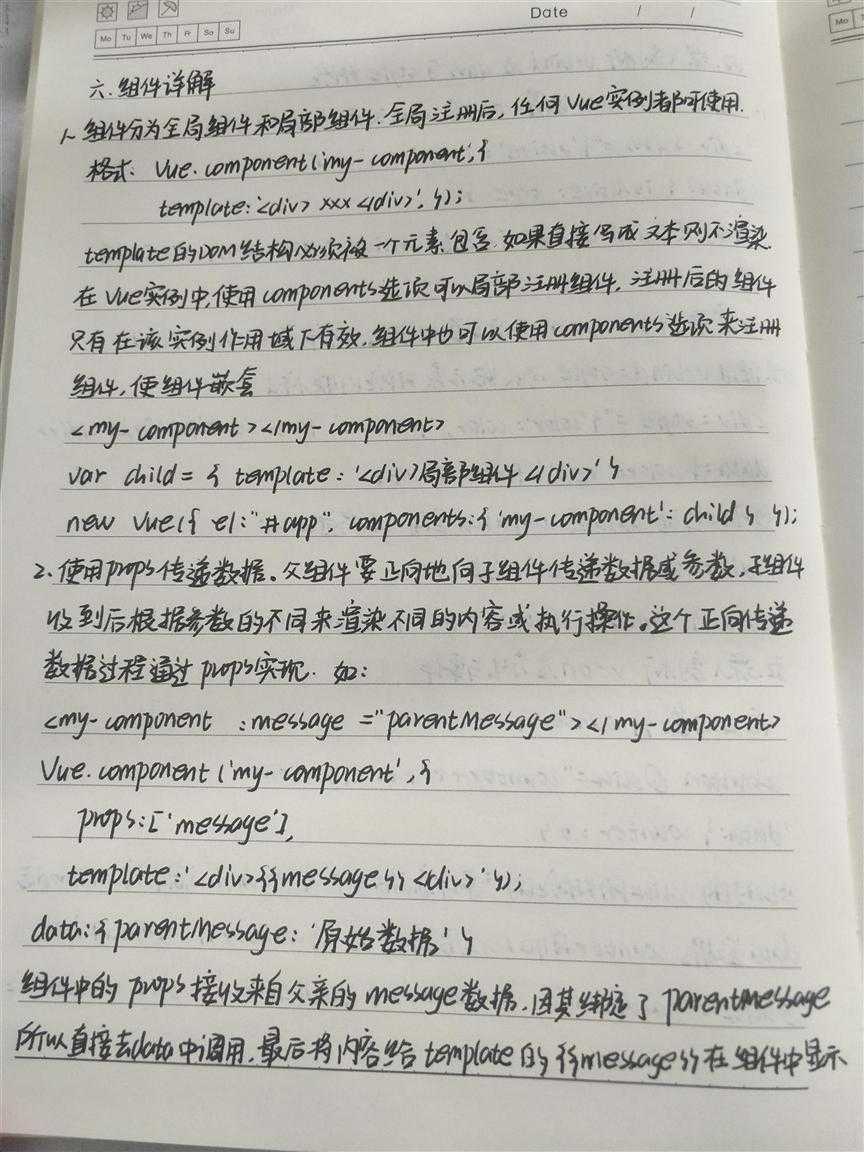 Date / /
Mo Tu We Th Fr Sa Su
六.组件详解
1. 组件分为全局组件和局部组件.全局注册后,任何Vue实例都可使用.
格式: Vue.component('my-component',{
template:'<div> xxx </div>', });
template的DOM结构必须被一个元素包含.如果直接写成文本则不渲染.
在Vue实例中,使用components选项可以局部注册组件,注册后的组件
只有在该实例作用域下有效.组件中也可以使用components选项来注册
组件,使组件嵌套
<my-component></my-component>
var child = { template: '<div>局部组件</div>' }
new Vue({ el:"#app", components:{ 'my-component': child } });
2.使用props传递数据。父组件要正向地向子组件传递数据或参数,子组件
收到后根据参数的不同来渲染不同的内容或执行操作。这个正向传递
数据过程通过props实现. 如:
<my-component :message ="parentMessage"></my-component>
Vue.component('my-component',{
props:['message'],
template:'<div>{{message}}<div>' });
data:{parentMessage: '原始数据' }
组件中的props接收来自父亲的message数据,因其绑定了parentMessage
所以直接去data中调用,最后将内容给template的{{message}}在组件中显示